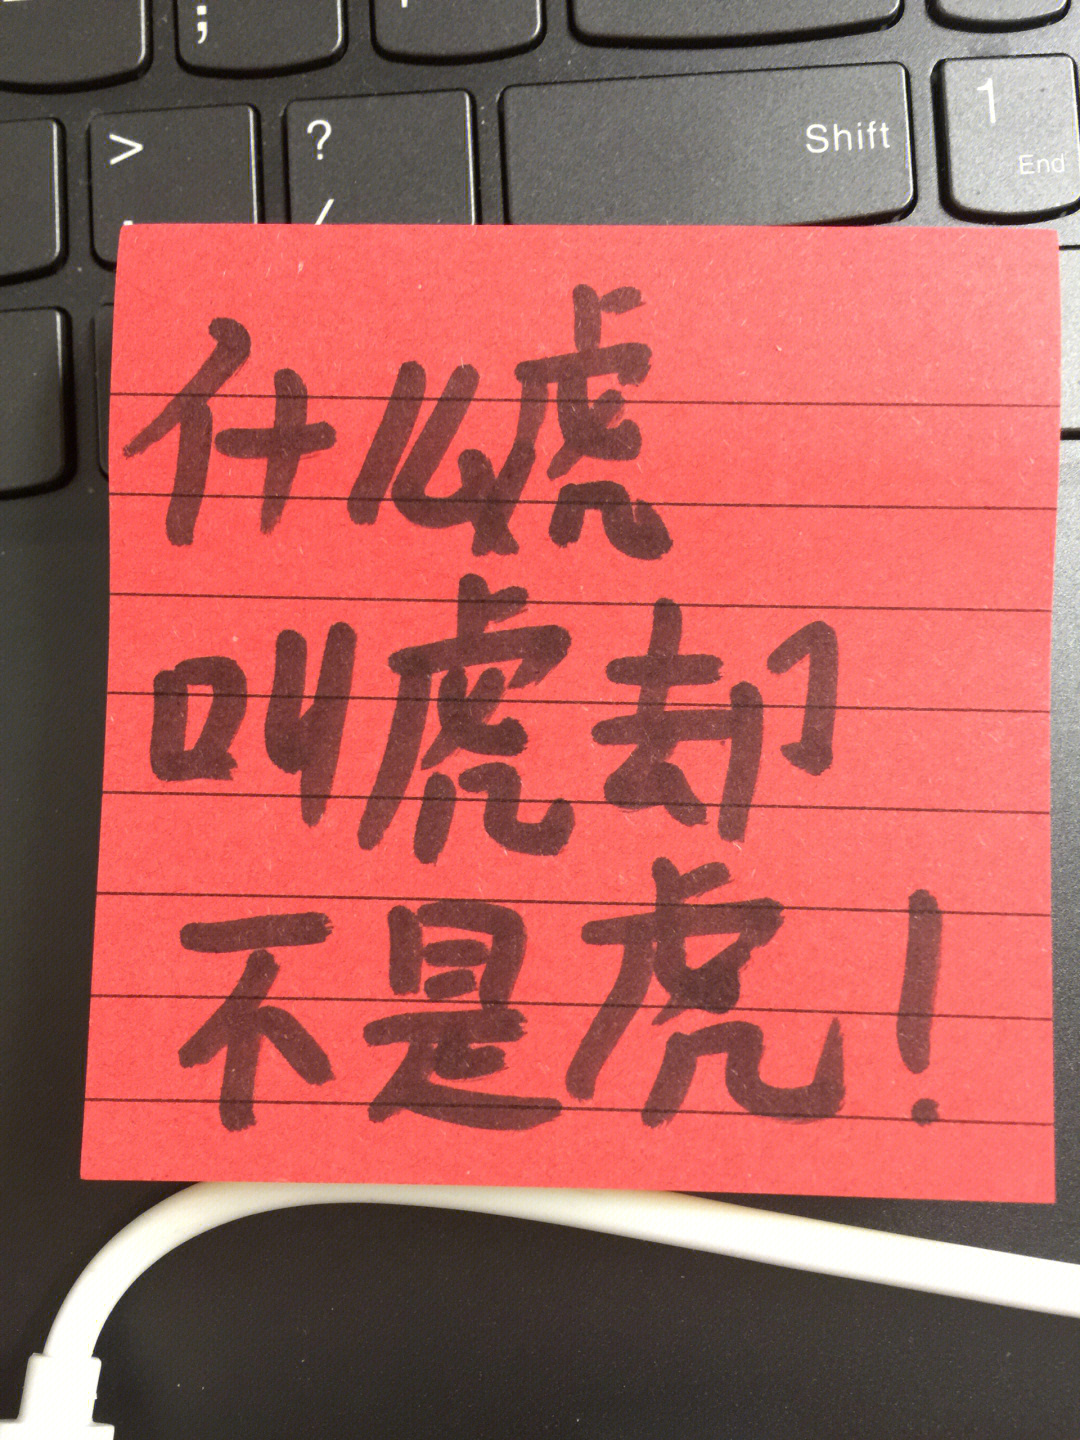 ;
> ? Shift 1
. / End
什么虎
叫虎却
不是虎!